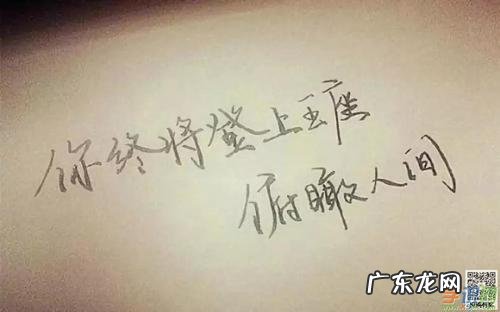 你终将登上王座
俯瞰人间
广东龙网